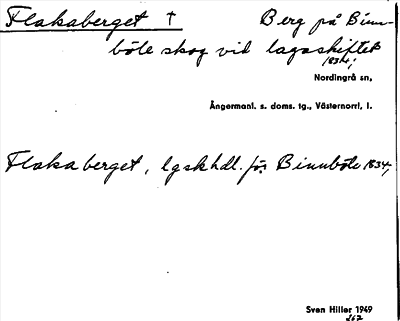 Flakaberget † Berg på Binn-
böle skog vid lagaskiftet
1834;
Nordingrå sn,
Ångermanl. s. doms. tg., Västernorrl. l.
Flakaberget, lgskhdl. för Binnböle 1834,
Sven Hiller 1949
262